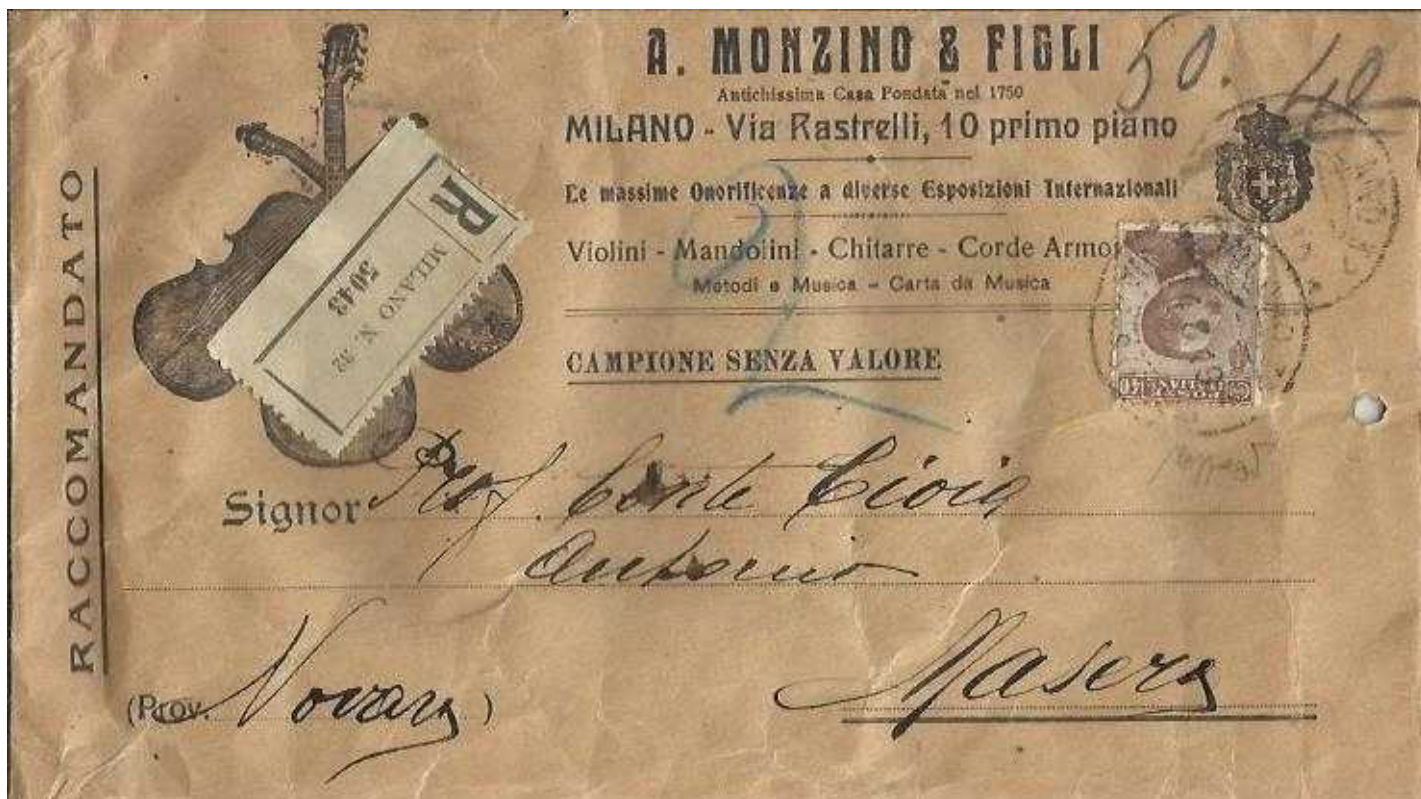 A. MONZINO & FIGLI
Antichissima Casa Fondata nel 1750
MILANO - Via Rastrelli, 10 primo piano
Le massime Onorificenze a diverse Esposizioni Internazionali
Violini - Mandolini - Chitarre - Corde Armo
Metodi e Musica - Carta da Musica
CAMPIONE SENZA VALORE
50. 40
RACCOMANDATO
R
MILANO N. 32
5043
Signor Prof. Conte Cioia
Antonio
Masera
(Prov. Novara)